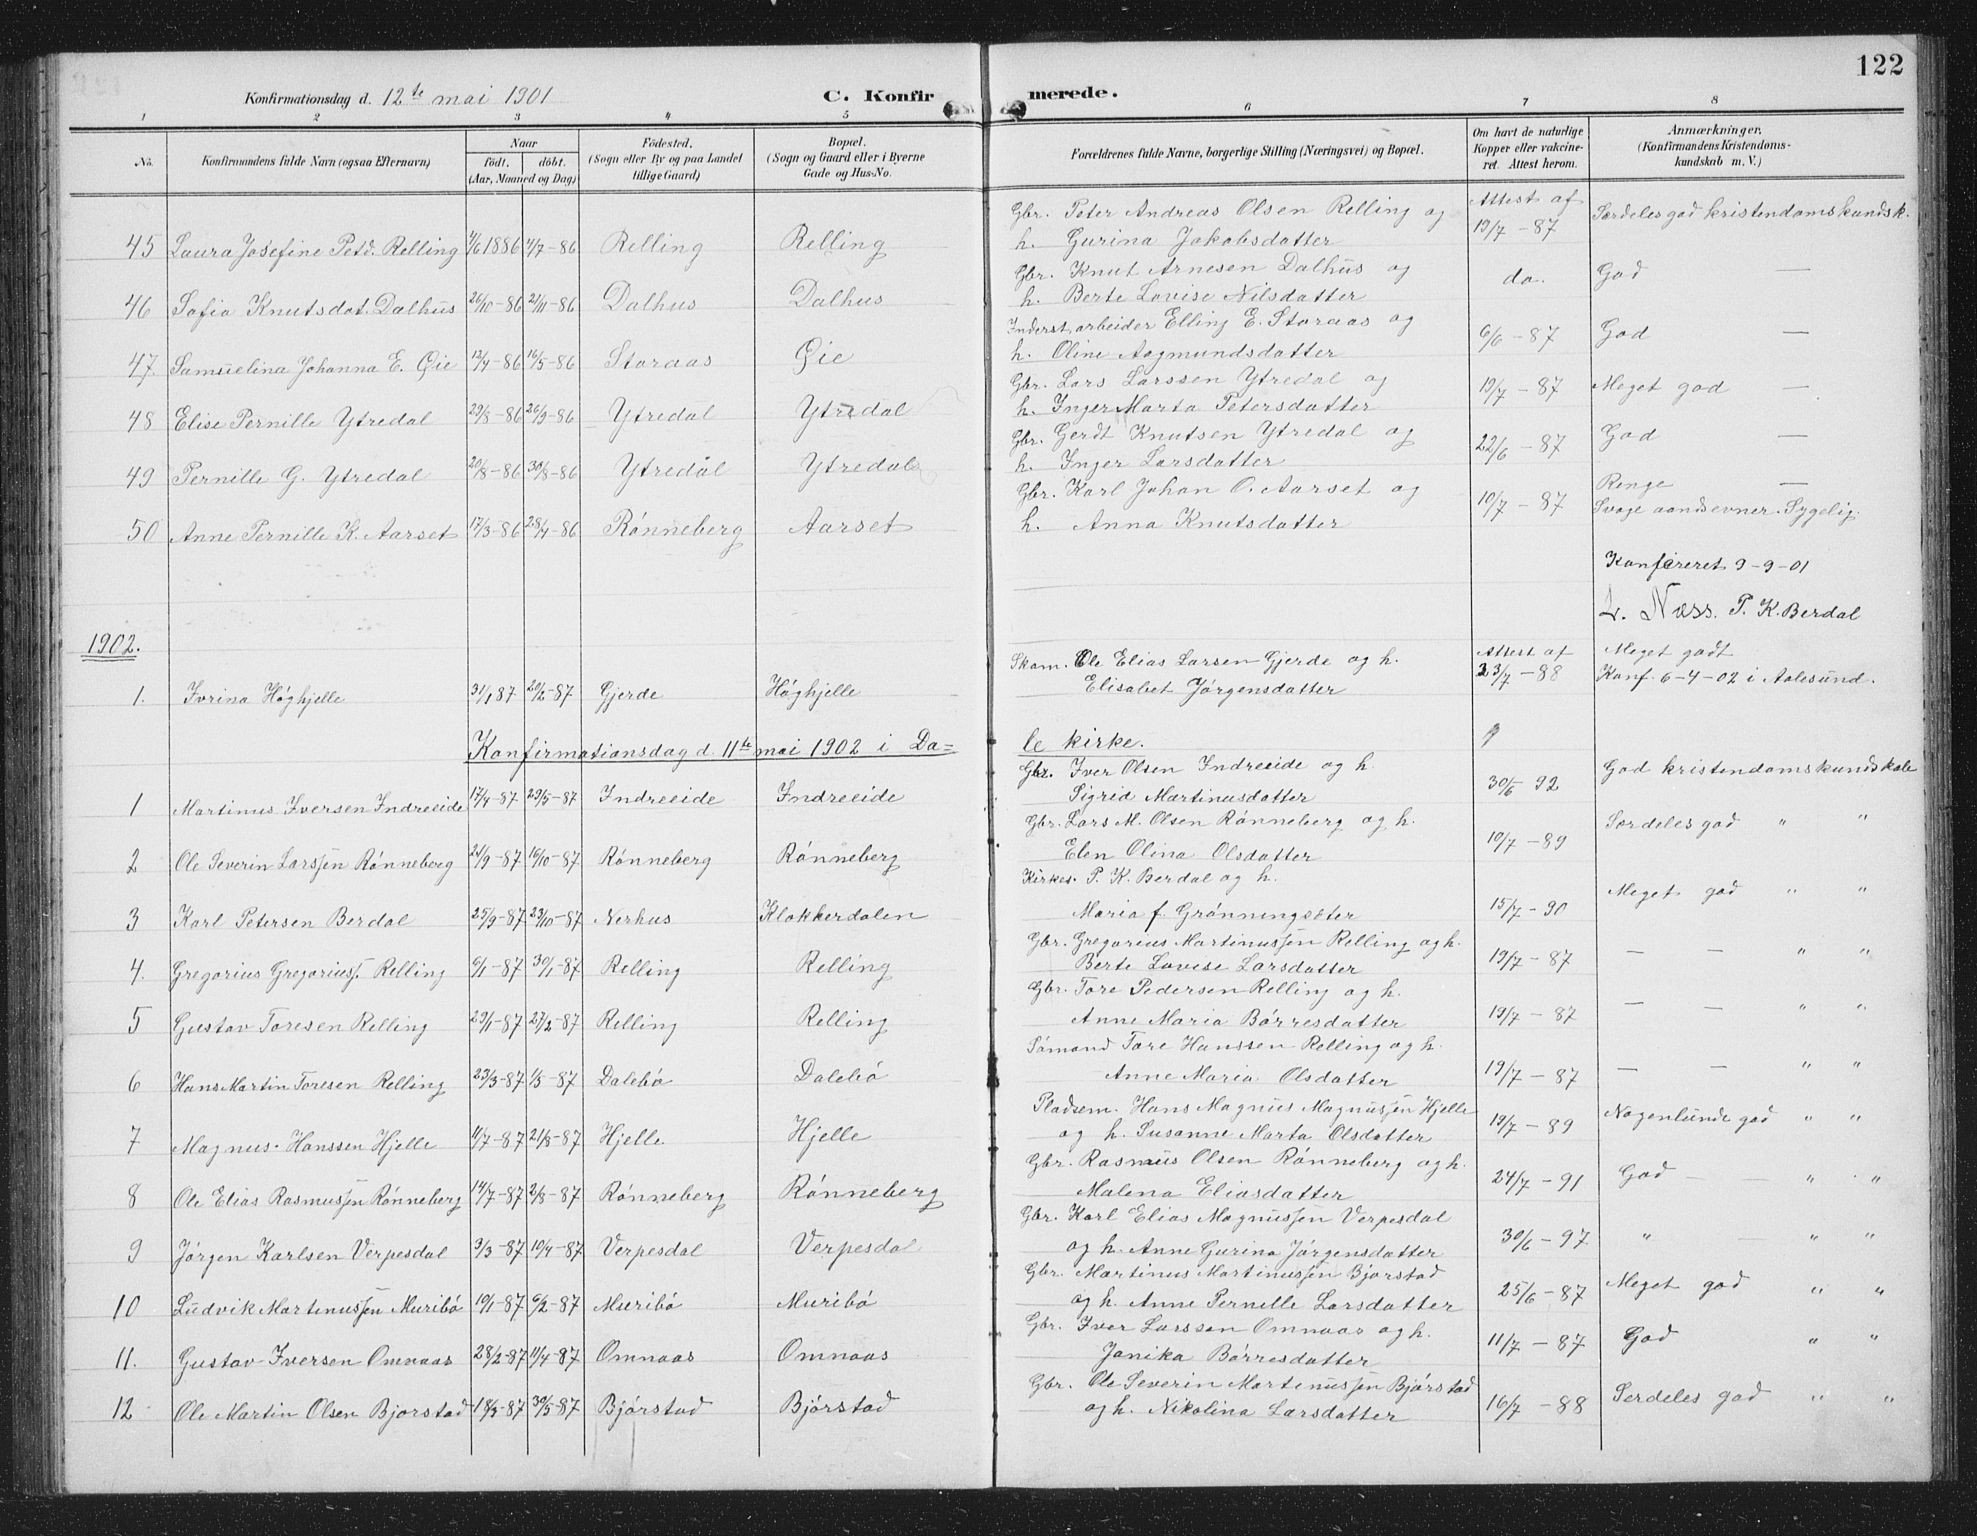 122
Konfirmationsdag d. 12te mai 1901 C. Konfirmerede.
1 2 3 4 5 6 7 8
No. Konfirmandens fulde Navn (ogsaa Efternavn) Naar födt. döbt. (Aar, Maaned og Dag) Födested. (Sogn eller By og paa Landet tillige Gaard) Bopæl. (Sogn og Gaard eller i Byerne Gade og Hus-No. Forældrenes fulde Navne, borgerlige Stilling (Næringsvei) og Bopæl. Om havt de naturlige Kopper eller vakcineret. Attest herom. Anmærkninger. (Konfirmandens Kristendomskundskab m. V.)
Gbr. Peter Andreas Olsen Relling og Attest af Særdeles god kristendomskundsk.
45 Laura Josefine Petd. Relling 4/6 1886 4/7-86 Relling Relling h. Gurina Jakobsdatter 19/7-87
Gbr. Knut Arnesen Dalhus og do. God —
46 Sofie Knutsdat. Dalhus 26/10-86 21/11-86 Dalhus Dalhus h. Berte Lovise Nilsdatter
Inderst, arbeider Elling E. Storaas og 6/6-87 God —
47. Samuelina Johanna E. Øie 12/4-86 16/5-86 Storaas Øie h. Oline Aagmundsdatter
Gbr. Lars Larssen Ytredal og 19/7-87 Meget god —
48 Elise Pernille Ytredal 29/8-86 26/9-86 Ytredal Ytredal h. Inger Marta Petersdatter
Gbr. Gerdt Knutsen Ytredal og 22/6-87 God —
49 Pernille G. Ytredal 20/8-86 30/8-86 Ytredal Ytredal h. Inger Larsdatter
Gbr. Karl Johan O. Aarset og 10/7-87 Ringe —
50 Anne Pernille K. Aarset 17/3-86 28/4-86 Rønneberg Aarset h. Anna Knutsdatter Svage aandsevner. Sygelig.
Konfereret 9-9-01
L. Næss. P. K. Berdal
1902.
Skom. Ole Elias Larsen Gjerde og h. Attest af Meget godt
1. Ivrina Høghjelle 31/1 87 20/2-87 Gjerde Høghjelle Elisabet Jørgensdatter 23/7-88 Konf. 6-4-02 i Aalesund.
Konfirmationsdag d. 11te mai 1902 i Dale kirke.
Gbr. Iver Olsen Indreeide og h. 30/6 92 God kristendomskundskab
1 Martinus Iversen Indreeide 17/4-87 29/5-87 Indreeide Indreeide Sigrid Martinusdatter
Gbr. Lars M. Olsen Rønneberg og h. 10/7-89 Særdeles god " "
2 Ole Severin Larssen Rønneberg 21/9-87 16/10-87 Rønneberg Rønneberg Elen Olina Olsdatter
Kirkes. P. K. Berdal og h. Meget god " "
3 Karl Petersen Berdal 25/9-87 23/10-87 Nerhus Klokkerdalen Maria f. Grønningsæter 15/7-90
Gbr. Gregorius Martinussen Relling og h. 19/7-87 — — " "
4. Gregorius Gregoriuss. Relling 6/1-87 30/1-87 Relling Relling Berte Lovise Larsdatter
Gbr. Tore Pedersen Relling og h. — — " "
5 Gustav Toresen Relling 29/1-87 27/2-87 Relling Relling Anne Maria Børresdatter 19/7-87
Sømand Tore Hanssen Relling og h. — — " "
6 Hans Martin Toresen Relling 23/3-87 1/5-87 Dalebø Dalebø Anne Maria Olsdatter 19/7-87
Pladsem. Hans Magnus Magnussen Hjelle 19/7-89 Nogenlunde god " "
7 Magnus Hanssen Hjelle 11/7-87 21/8-87 Hjelle Hjelle og h. Susanne Marta Olsdatter
Gbr. Rasmus Olsen Rønneberg og h. 24/7-91 God — — " "
8 Ole Elias Rasmussen Rønneberg 14/7-87 2/8-87 Rønneberg Rønneberg Malena Eliasdatter
Gbr. Karl Elias Magnussen Verpesdal 30/6-97 " — " "
9 Jørgen Karlsen Verpesdal 3/3-87 10/4-87 Verpesdal Verpesdal og h. Anne Gurina Jørgensdatter
Gbr. Martinus Martinussen Bjørstad 25/6-87 Meget god " "
10 Ludvik Martinussen Muribø 10/1-87 6/2-87 Muribø Muribø og h. Anne Pernille Larsdatter
Gbr. Iver Larssen Omnaas og h. 11/7-87 God " "
11. Gustav Iversen Omnaas 28/2-87 11/4-87 Omnaas Omnaas Janika Børresdatter
Gbr. Ole Severin Martinussen Bjørstad 16/7-88 Særdeles god " "
12 Ole Martin Olsen Bjørstad 18/3-87 30/5-87 Bjørstad Bjørstad og h. Nikolina Larsdatter